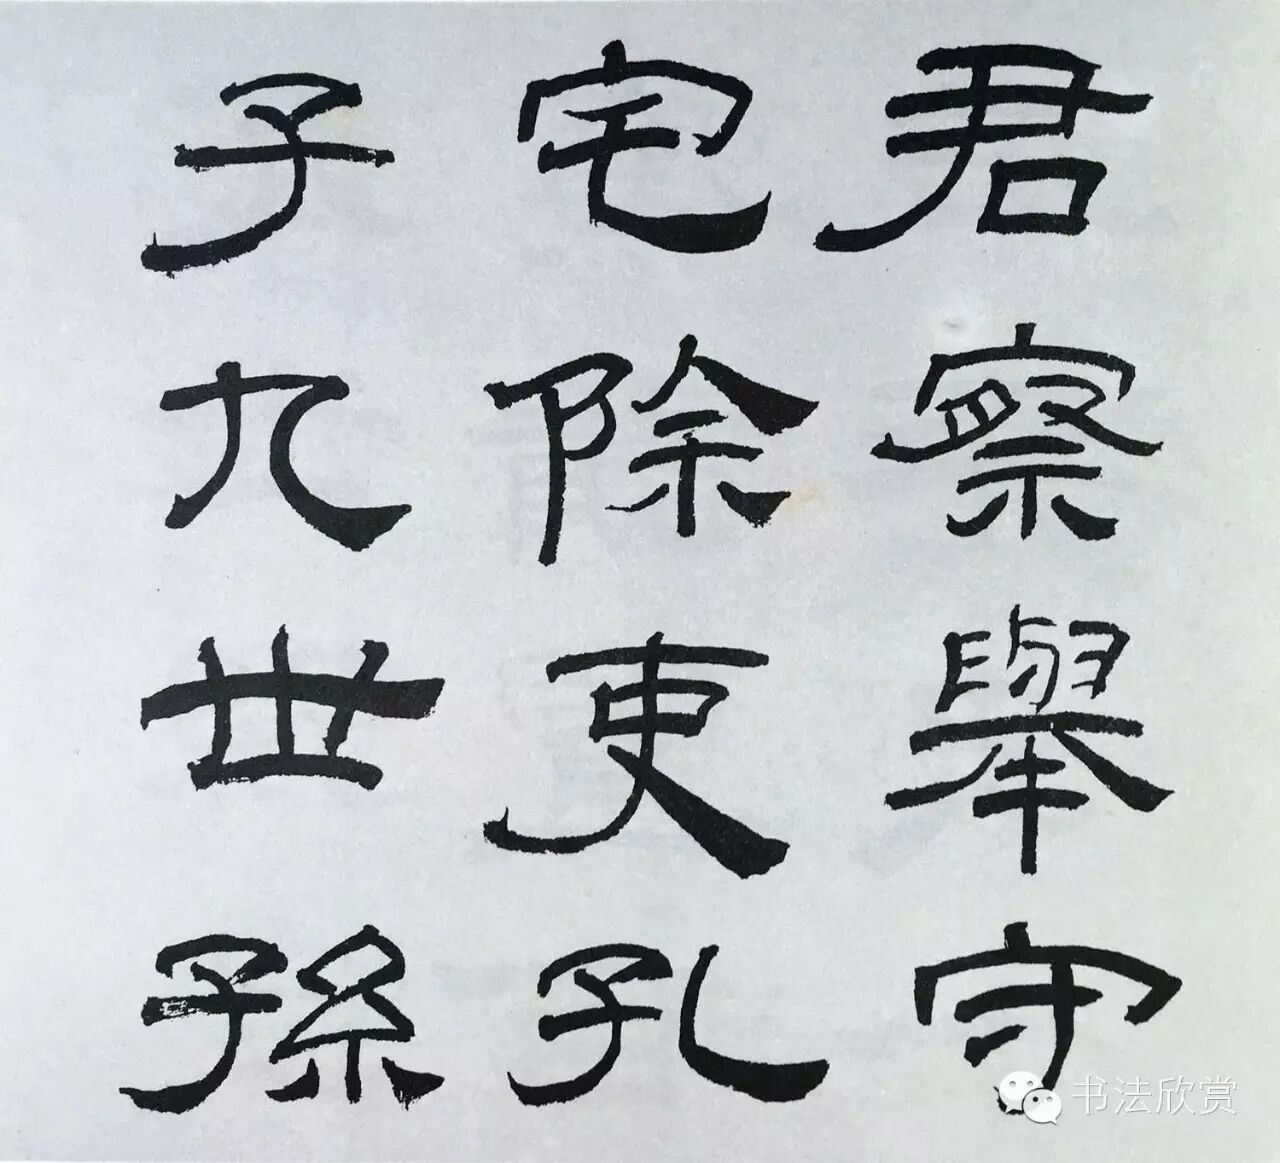 君察舉守
宅除吏孔
子九世孫
书法欣赏